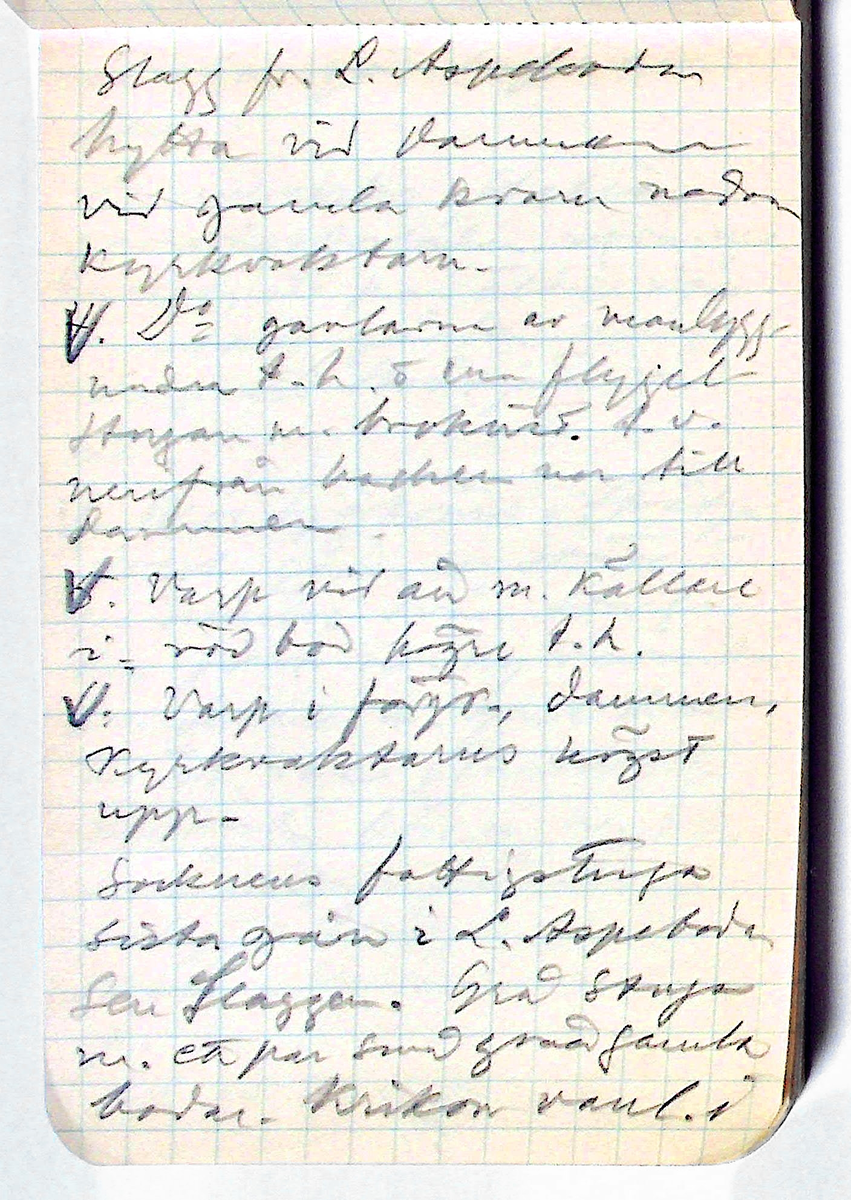 Slagg fr. L. Aspeboda
hytta vid dammen
vid gamla kvarn nedom
Kyrkvaktarn.
V. Do gavlarna av manbygg-
naden t.h. o en flygel
stugan m. t.v.
nerifrån backen ner till
dammen.
V. Varp vid ån m. källare
i röd bod högre t.h.
V. Varp i förgr., dammen,
Kyrkvaktarns högst
upp.
Socknens fattigstuga
sista gård i L. Aspeboda
sen Slaggen. Grå stuga
m. ett par små grå gamla
bodar. Krikon vanl. i